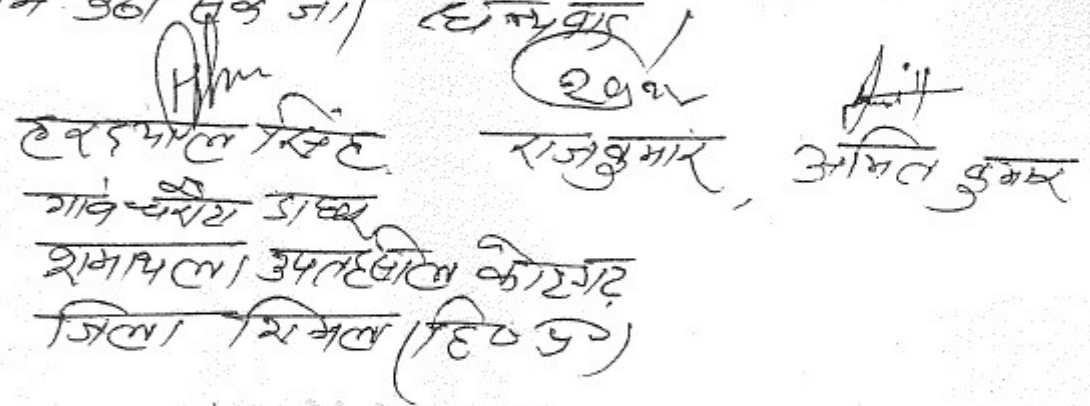 उठा सके जी। धन्यवाद।
हरदयाल सिंह राजकुमार, अमित कुमार
गांव डाकघर
शमाथला उपतहसील कोटगढ़
जिला शिमला (हि० प्र०)